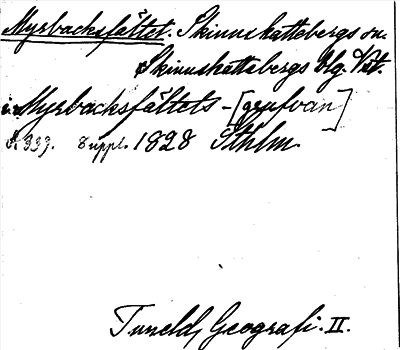 Myrbacksfältet. Skinnskattebergs sn.
Skinnskattebergs blg. Vstm.
i. Myrbacksfältets - [grufvan]
s. 333. Suppl. 1828 Sthlm.
Tunelds Geografi. II.